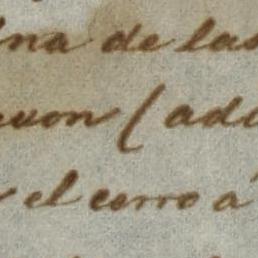 ina de las
uon (ado
el cerro á